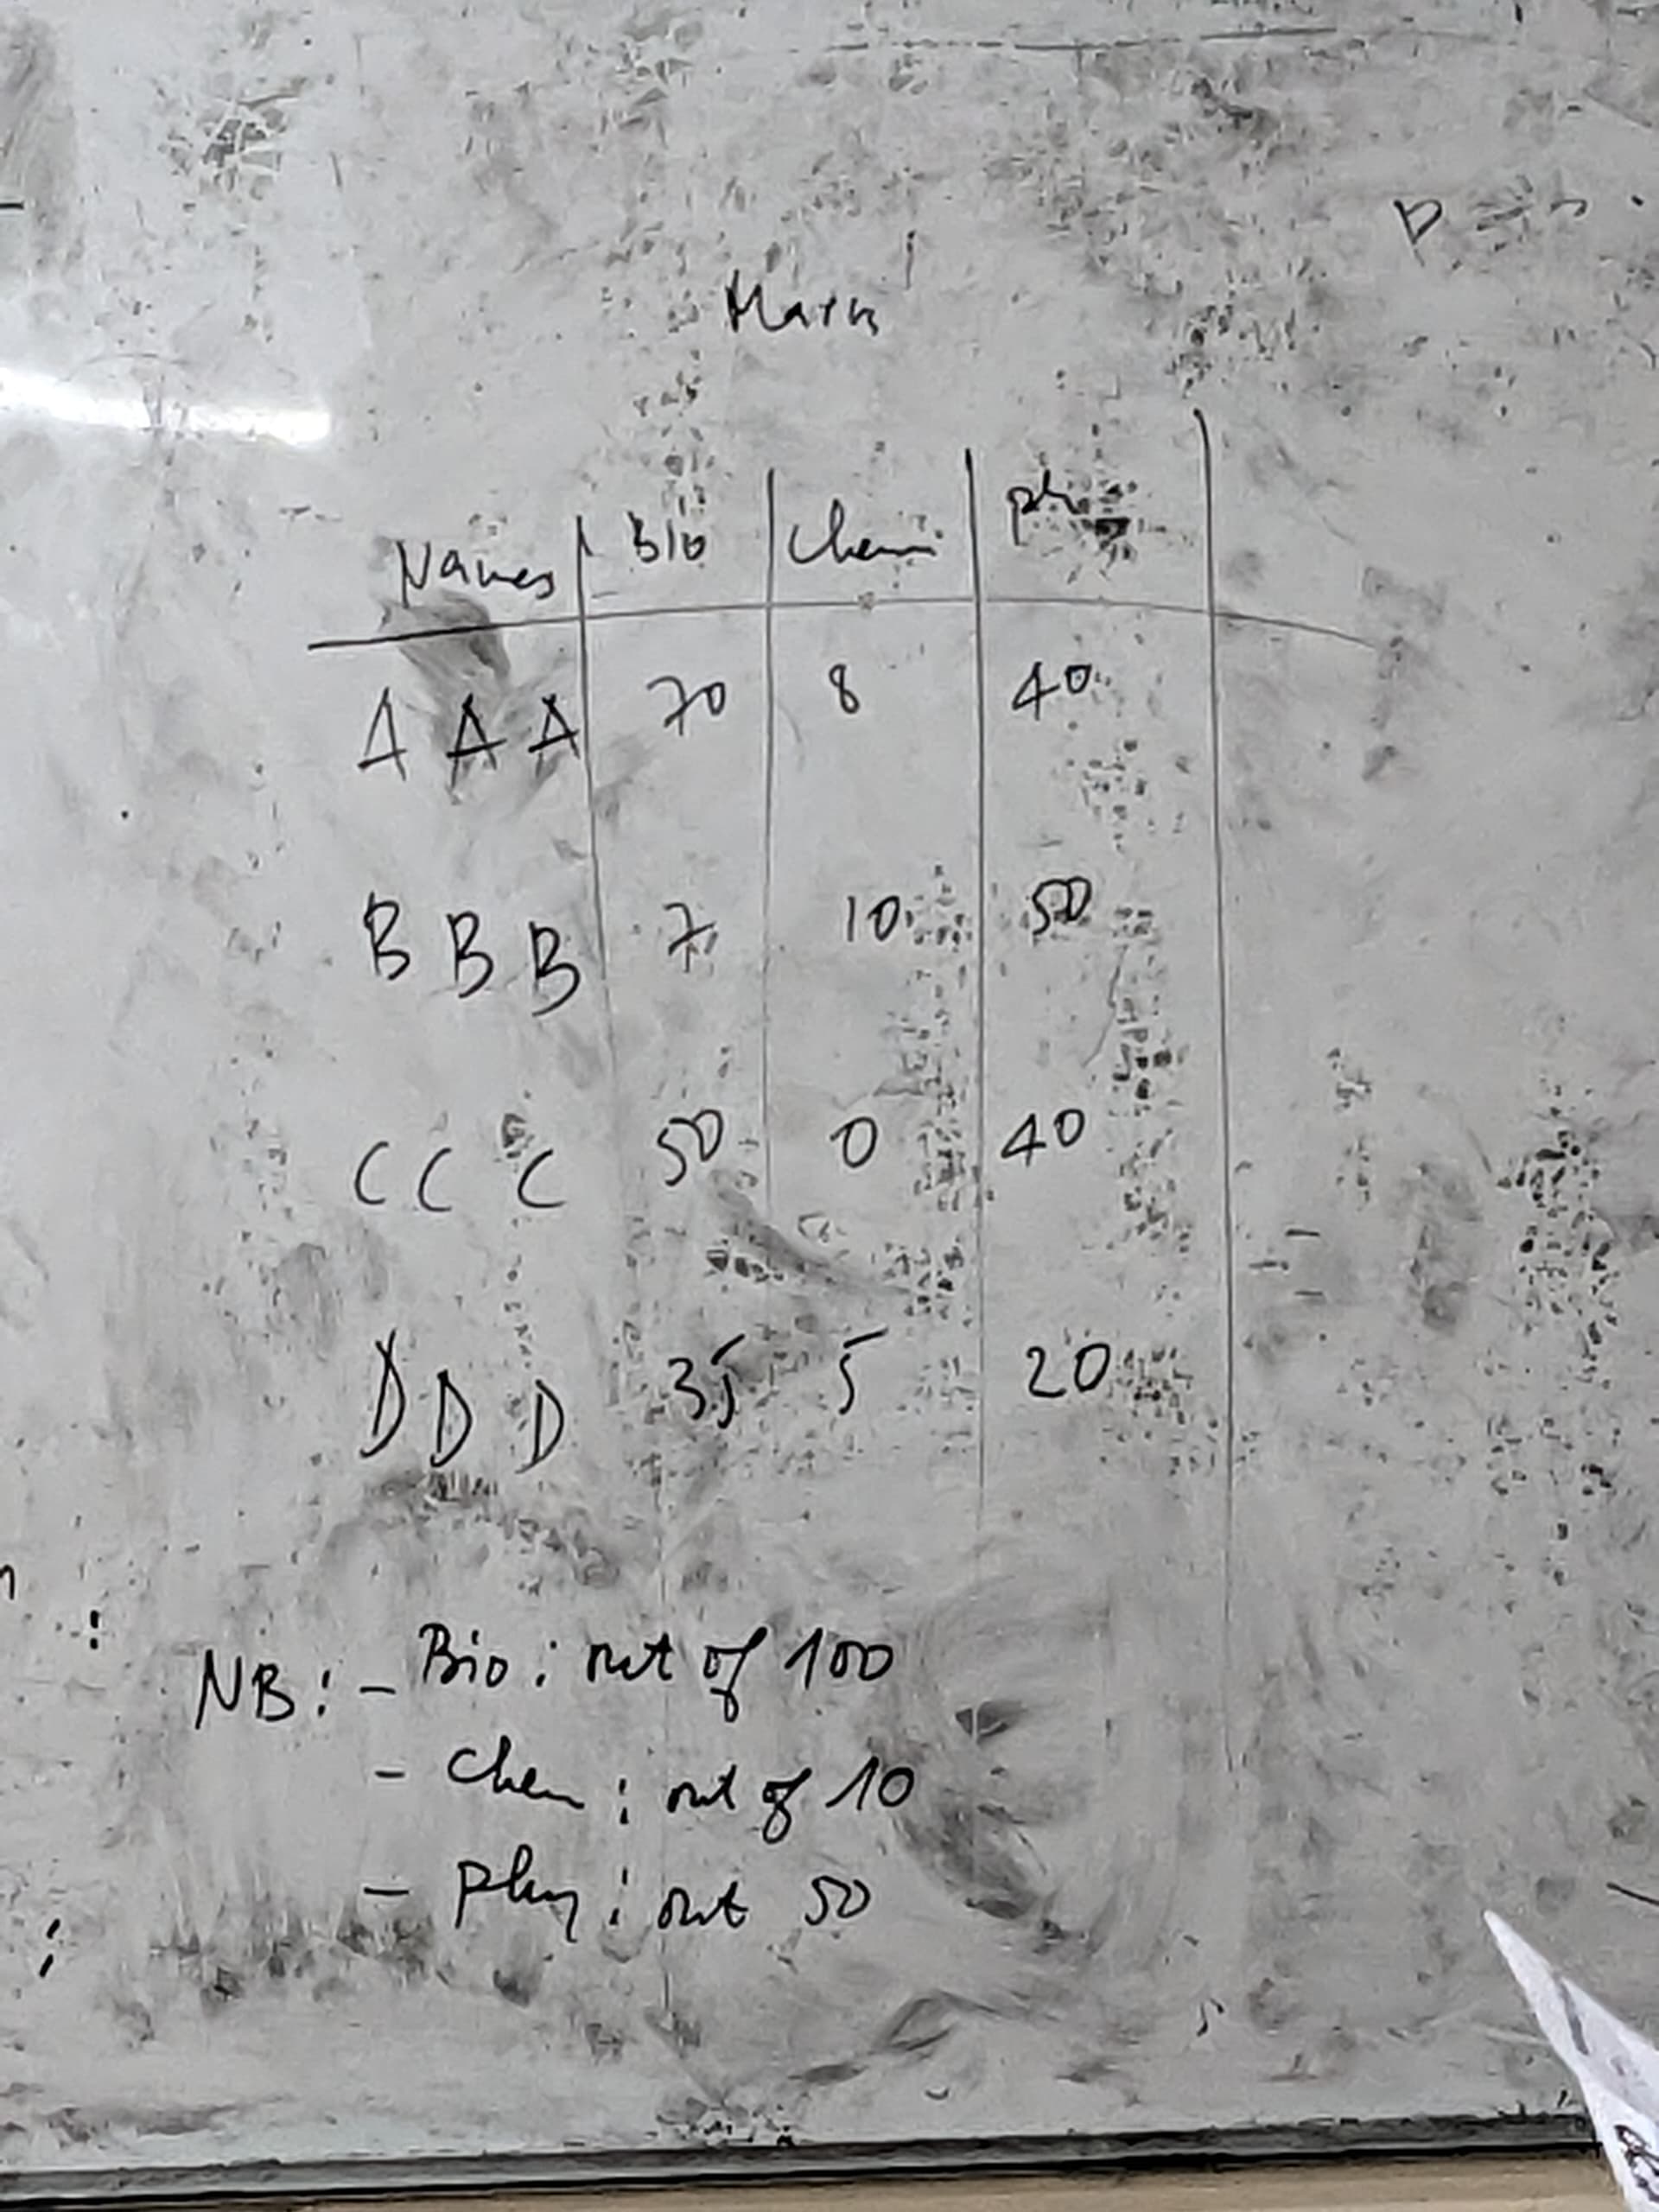 Marks
Names Bio Chemi phy
AAA 70 8 40
BBB 7 10 50
CCC 50 0 40
DDD 35 5 20
NB: - Bio: out of 100
- Chem: out of 10
- phy: out 50